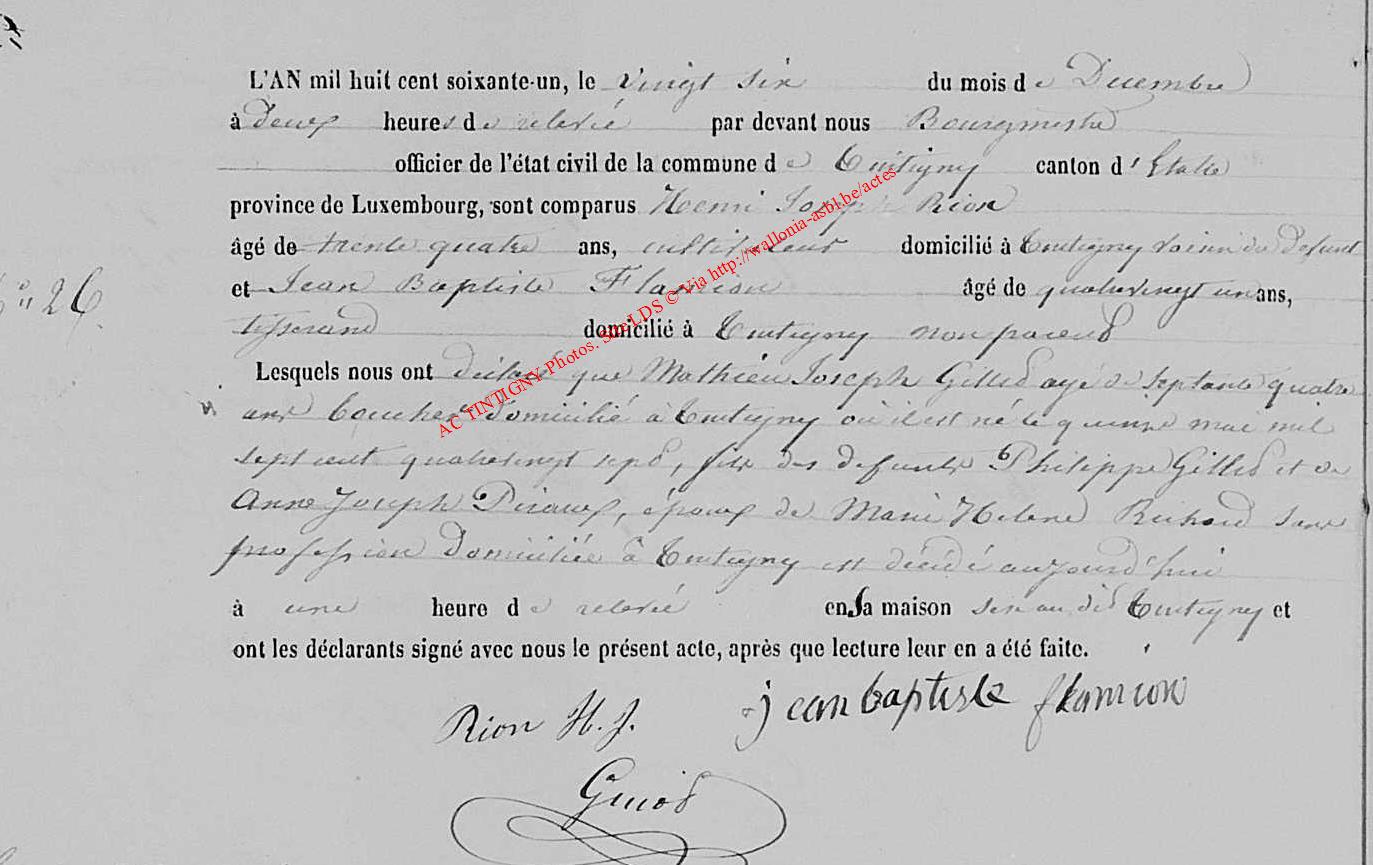 L'AN mil huit cent soixante-un, le vingt six du mois de Decembre
à deux heures de relevée par devant nous Bourgmestre
officier de l'état civil de la commune de Tintigny canton d'Etalle
province de Luxembourg, sont comparus Henri Joseph Rion
âgé de trente quatre ans, cultivateur domicilié à Tintigny voisin du defunt
et Jean Baptiste Flamion âgé de quatrevingt un ans,
N° 26.
tisserand domicilié à Tintigny non parent
Lesquels nous ont déclaré que Mathieu Joseph Gillet agé de septante quatre
ans boucher domicilié à Tintigny où il est né le quinze mai mil
sept cent quatrevingt sept, fils des defunts Philippe Gillet et de
Anne Joseph, époux de Marie Helene Richard sans
profession domiciliée à Tintigny est décédé aujourd'hui
à une heure de relevée en sa maison sise au dit Tintigny et
ont les déclarants signé avec nous le présent acte, après que lecture leur en a été faite.
Rion H. J. jean baptiste flamion
Guiot
AC TINTIGNY Photos. Site LDS © Via http://wallonia-asbl.be/actes